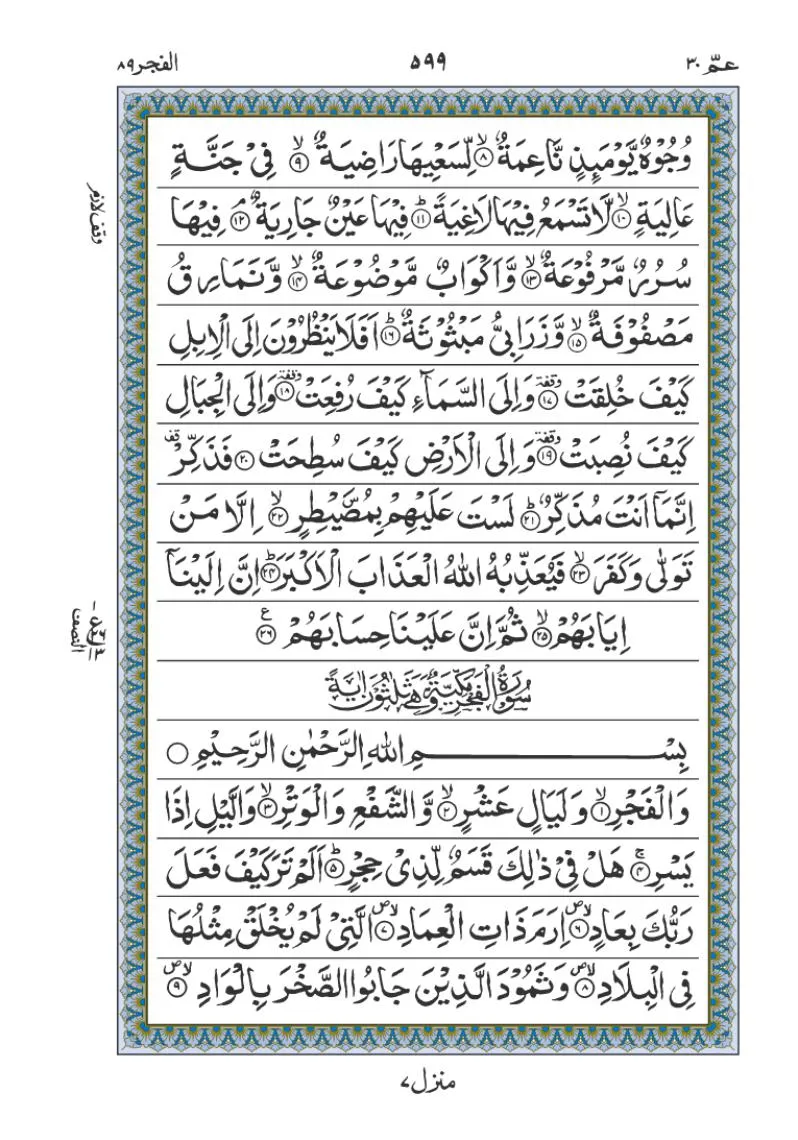 عمّ ۳۰
۵۹۹
الفجر ۸۹
وُجُوْهٌ يَّوْمَىِٕذٍ نَّاعِمَةٌ ۙ‏﴿۸﴾ لِّسَعْيِهَا رَاضِيَةٌ ۙ‏﴿۹﴾ فِىْ جَنَّةٍ
عَالِيَةٍ ۙ‏﴿۱۰﴾ لَّا تَسْمَعُ فِيْهَا لَاغِيَةً ؕ‏﴿۱۱﴾ فِيْهَا عَيْنٌ جَارِيَةٌ‌ ۘ‏﴿۱۲﴾ فِيْهَا
وقف لازم
سُرُرٌ مَّرْفُوْعَةٌ ۙ‏﴿۱۳﴾ وَّاَكْوَابٌ مَّوْضُوْعَةٌ ۙ‏﴿۱۴﴾ وَّنَمَارِقُ
مَصْفُوْفَةٌ ۙ‏﴿۱۵﴾ وَّزَرَابِىُّ مَبْثُوْثَةٌ ؕ‏﴿۱۶﴾ اَفَلَا يَنْظُرُوْنَ اِلَى الْاِبِلِ
كَيْفَ خُلِقَتْ وقفة﴿۱۷﴾ وَاِلَى السَّمَآءِ كَيْفَ رُفِعَتْ وقفة﴿۱۸﴾ وَاِلَى الْجِبَالِ
كَيْفَ نُصِبَتْ وقفة﴿۱۹﴾ وَاِلَى الْاَرْضِ كَيْفَ سُطِحَتْ‏﴿۲۰﴾ فَذَكِّرْ قف
اِنَّمَاۤ اَنْتَ مُذَكِّرٌ ؕ‏﴿۲۱﴾ لَسْتَ عَلَيْهِمْ بِمُصَۜيْطِرٍ ۙ‏﴿۲۲﴾ اِلَّا مَنْ
تَوَلّٰى وَكَفَرَ ۙ‏﴿۲۳﴾ فَيُعَذِّبُهُ اللّٰهُ الْعَذَابَ الْاَكْبَرَ ؕ‏﴿۲۴﴾ اِنَّ اِلَيْنَاۤ
اِيَابَهُمْ ۙ‏﴿۲۵﴾ ثُمَّ اِنَّ عَلَيْنَا حِسَابَهُمْ ع﴿۲۶﴾
النصف
سُوْرَةُ الْفَجْرِ مَكِّيَّةٌ وَّهِىَ ثَلٰثُوْنَ اٰيَةً
بِسْمِ اللّٰهِ الرَّحْمٰنِ الرَّحِيْمِ ○
وَالْفَجْرِۙ‏﴿۱﴾ وَلَيَالٍ عَشْرٍۙ‏﴿۲﴾ وَّالشَّفْعِ وَالْوَتْرِۙ‏﴿۳﴾ وَالَّيْلِ اِذَا
يَسْرِ‌ۚ‏﴿۴﴾ هَلْ فِىْ ذٰلِكَ قَسَمٌ لِّذِىْ حِجْرٍؕ‏﴿۵﴾ اَلَمْ تَرَ كَيْفَ فَعَلَ
رَبُّكَ بِعَادٍ ۙ‏﴿۶﴾ اِرَمَ ذَاتِ الْعِمَادِ ۙ‏﴿۷﴾ الَّتِىْ لَمْ يُخْلَقْ مِثْلُهَا
فِى الْبِلَادِ ۙ‏﴿۸﴾ وَثَمُوْدَ الَّذِيْنَ جَابُوا الصَّخْرَ بِالْوَادِ ۙ‏﴿۹﴾
منزل ۷